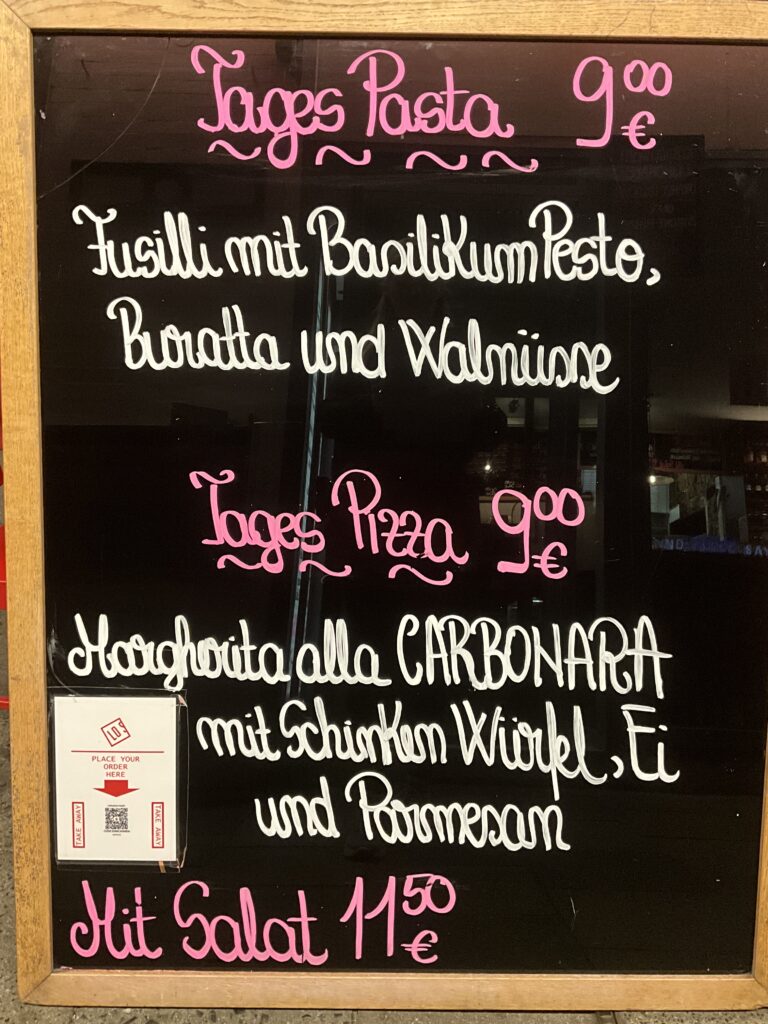 Tages Pasta 9⁰⁰ €
Fusilli mit BasiliKum Pesto,
Buratta und Walnüsse
Tages Pizza 9⁰⁰ €
Margherita alla CARBONARA
mit SchinKen Würfel, Ei
und Parmesan
LOS
PLACE YOUR
ORDER
HERE
TAKE AWAY
TAKE AWAY
Mit Salat 11⁵⁰ €